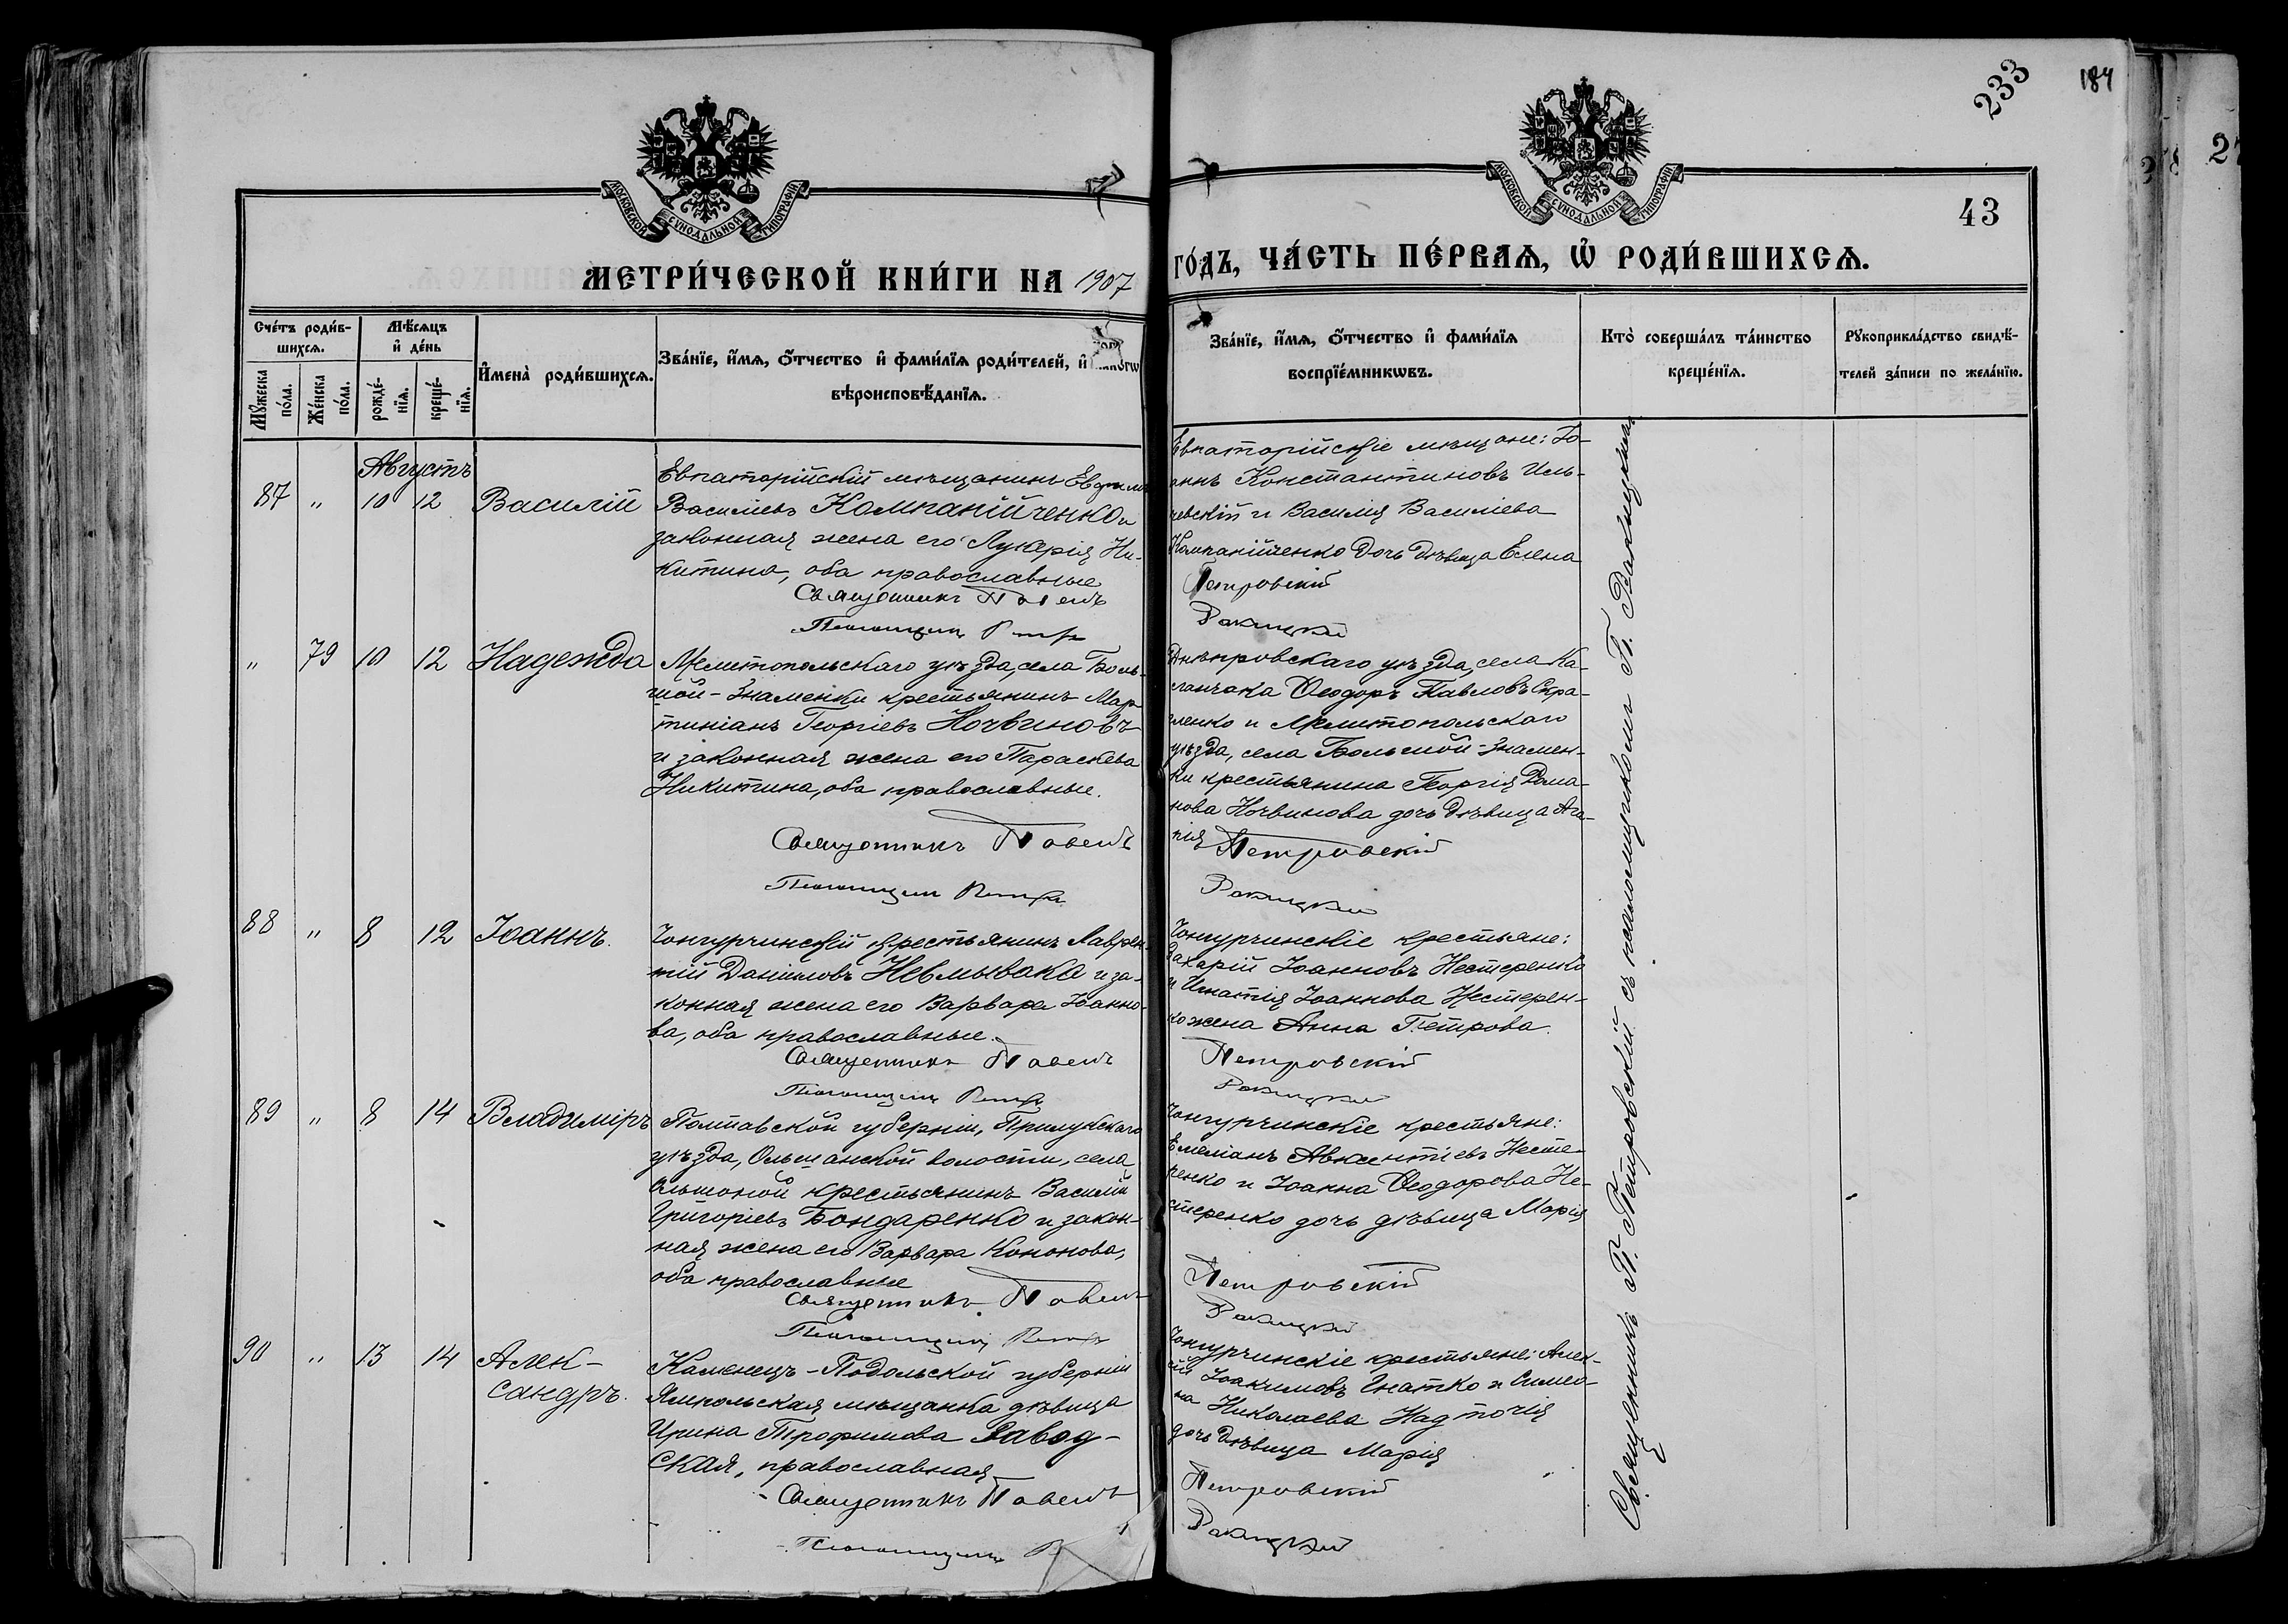 233
184
27
МОСКОВСКОЙ СѴНОДАЛЬНОЙ ТИПОГРАФІИ
МОСКОВСКОЙ СѴНОДАЛЬНОЙ ТИПОГРАФІИ
43
МЕТРИ́ЧЕСКОЙ КНИ́ГИ НА 1907
ГО́ДЪ, ЧА́СТЬ ПЕ́РВАѦ, Ѽ РОДИ́ВШИХСѦ.
Сче́тъ роди́в-
шихсѧ.
Мꙋжеска по́ла.
Же́нска по́ла.
Мѣ́сѧцъ
и҆ де́нь
рожде́-
нїѧ.
креще́-
нїѧ.
И҆мена̀ роди́вшихсѧ.
Зва́нїе, и҆́мѧ, ѻ҆́тчество и҆ фами́лїѧ роди́телей, и҆
вѣроисповѣ́данїѧ.
Зва́нїе, и҆́мѧ, ѻ҆́тчество и҆ фами́лїѧ
воспрїе́мникѡвъ.
Кто̀ соверша́лъ та́инство
креще́нїѧ.
Рꙋкоприкла́дство свидѣ́-
телей за́писи по жела́нїю.
Августъ
87 " 10 12 Василій
Евпаторійскій мѣщанинъ Евфим
Василіевъ Компанійченко и
законная жена его Лукерія Ни-
китина, оба православные
Священникъ Павелъ
Псаломщикъ Петръ
Евпаторійскіе мѣщане: Іо-
аннъ Константиновъ Иль-
чевскій и Василія Василіева
Компанійченко дочь дѣвица Елена
Петровскій
Ракицкій
" 79 10 12 Надежда
Мелитопольскаго уѣзда, села Боль-
шой-Знаменки крестьянинъ Мар-
тиніанъ Георгіевъ Ночвиновъ
и законная жена его Параскева
Никитина, оба православные.
Священникъ Павелъ
Псаломщикъ Петръ
Днѣпровскаго уѣзда, села Ка-
ланчака Ѳеодоръ Павловъ Скра-
ленко и Мелитопольскаго
уѣзда, села Большой-Знамен-
ки крестьянина Георгія Рома-
нова Ночвинова дочь дѣвица Ага-
пія
Петровскій
Ракицкій
88 " 8 12 Іоаннъ.
Чонгурчинскій крестьянинъ Лаврен-
тій Даніиловъ Невмывака и за-
конная жена его Варвара Іоанно-
ва, оба православные.
Священникъ Павелъ
Псаломщикъ Петръ
Чонгурчинскіе крестьяне:
Захарій Іоанновъ Нестеренко
и Игнатія Іоаннова Нестерен-
ко жена Анна Петрова.
Петровскій
Ракицкій
89 " 8 14 Владиміръ
Полтавской губерніи, Прилукскаго
уѣзда, Ольшанской волости, села
Ольшаной крестьянинъ Василій
Григоріевъ Бондаренко и закон-
ная жена его Варвара Кононова,
оба православные
Священникъ Павелъ
Псаломщикъ Петръ
Чонгурчинскіе крестьяне:
Емеліанъ Авксентіевъ Несте-
ренко и Іоанна Ѳеодорова Не-
стеренко дочь дѣвица Марія
Петровскій
Ракицкій
90 " 13 14 Алек-
сандръ.
Каменецъ-Подольской губерніи
Ямпольская мѣщанка дѣвица
Ирина Трофимова Завод-
ская, православная
Священникъ Павелъ
Псаломщикъ
Чонгурчинскіе крестьяне: Алек-
сій Іоакимовъ Гнатко и Симео-
на Николаева Надточія
дочь дѣвица Марія
Петровскій
Ракицкій
Священникъ П. Петровскій съ псаломщикомъ П. Ракицкимъ